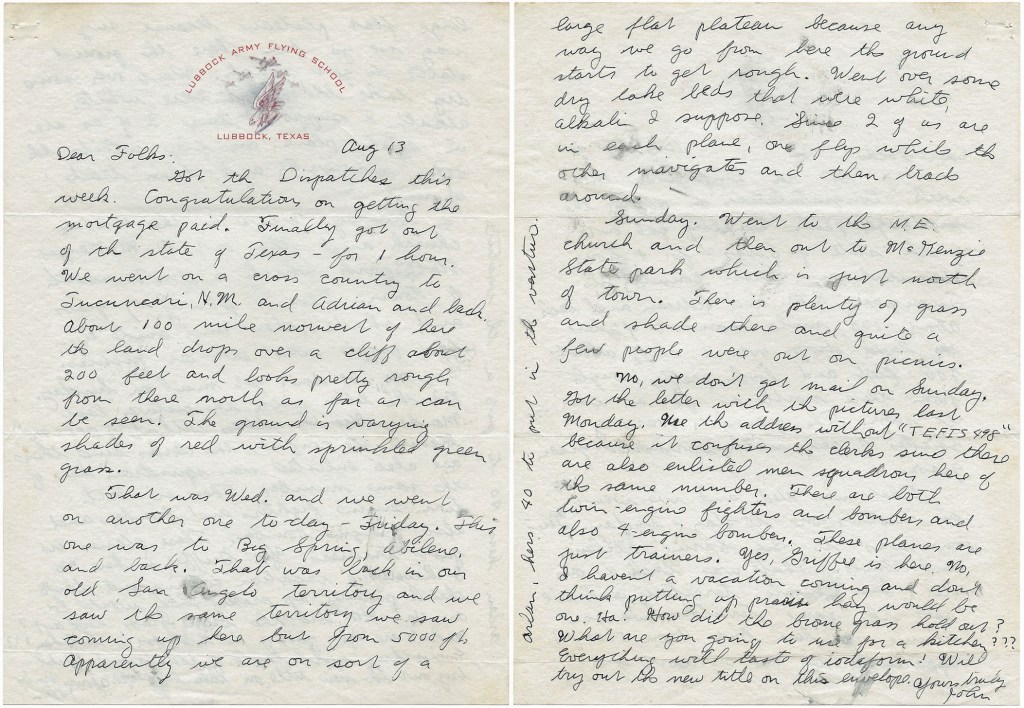 LUBBOCK ARMY FLYING SCHOOL
LUBBOCK, TEXAS
Aug 13
Dear Folks:
Got th Dispatches this
week. Congratulations on getting the
mortgage paid. Finally got out
of th state of Texas - for 1 hour.
We went on a cross country to
Tucumcari, N.M. and Adrian and back.
About 100 mile norwest of here
th land drops over a cliff about
200 feet and looks pretty rough
from there north as far as can
be seen. The ground is varying
shades of red with sprinkled green
grass.
That was Wed. and we went
on another one to-day - Friday. This
one was to Big Spring, Abilene,
and back. That was back in our
old San Angelo territory and we
saw th same territory we saw
coming up here but from 5000 ft.
Apparently we are on sort of a
large flat plateau because any
way we go from here th ground
starts to get rough. Went over some
dry lake beds that were white,
alkali I suppose. Since 2 of us are
in each plane, one flys while th
other navigates and then trade
around.
Sunday. Went to th M.E.
church and then out to McKenzie
State park which is just north
of town. There is plenty of grass
and shade there and quite a
few people were out on picnics.
No, we don't get mail on Sunday.
Got the letter with th pictures last
Monday. Use th address without "TEFTS 498"
because it confuses th clerks since there
are also enlisted men squadrons here of
th same number. There are both
twin-engine fighters and bombers and
also 4-engine bombers. These planes are
just trainers. Yes, Griffee is here. No,
I haven't a vacation coming and don't
think putting up prairie hay would be
one. Ha. How did th brome grass hold out?
What are you going to use for a kitchen???
Everything will taste of iodoform! Will
try out th new title on this envelope. Yours truly
John
Arlan, hers 40 to put in th